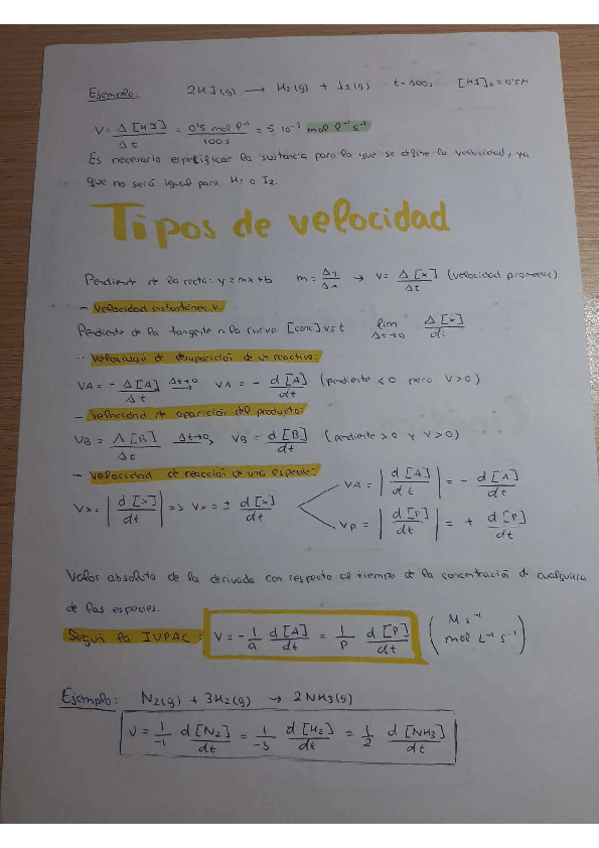 Ejemplo: 2HI(g) → H₂(g) + I₂(g) t=100s [HI]₀=0'5M
V = Δ[HI]/Δt = 0'5 mol l⁻¹/100 s = 5 10⁻³ mol l⁻¹ s⁻¹
Es necesario especificar la sustancia para la que se define la velocidad, ya
que no será igual para H₂ o I₂.
Tipos de velocidad
Pendiente de la recta: y=mx+b m = Δy/Δx → V = Δ[x]/Δt (velocidad promedio)
- Velocidad instantánea v.
Pendiente de la tangente a la curva [conc] vs t lim Δt→0 Δ[x]/dt
- Velocidad de desaparición de un reactivo:
VA = - Δ[A]/Δt Δt→0 VA = - d[A]/dt (pendiente <0 pero V>0)
- Velocidad de aparición del producto:
VB = Δ[B]/Δt Δt→0, VB = d[B]/dt (pendiente >0 y V>0)
- Velocidad de reacción de una especie:
Vx = |d[x]/dt| => Vx = ± d[x]/dt
VA = |d[A]/dt| = - d[A]/dt
VP = |d[P]/dt| = + d[P]/dt
Valor absoluto de la derivada con respecto al tiempo de la concentración de cualquiera
de las especies.
Según la IUPAC: V = - 1/a d[A]/dt = 1/p d[P]/dt (M s⁻¹ mol L⁻¹ s⁻¹)
Ejemplo: N₂(g) + 3H₂(g) → 2NH₃(g)
V = 1/-1 d[N₂]/dt = 1/-3 d[H₂]/dt = 1/2 d[NH₃]/dt